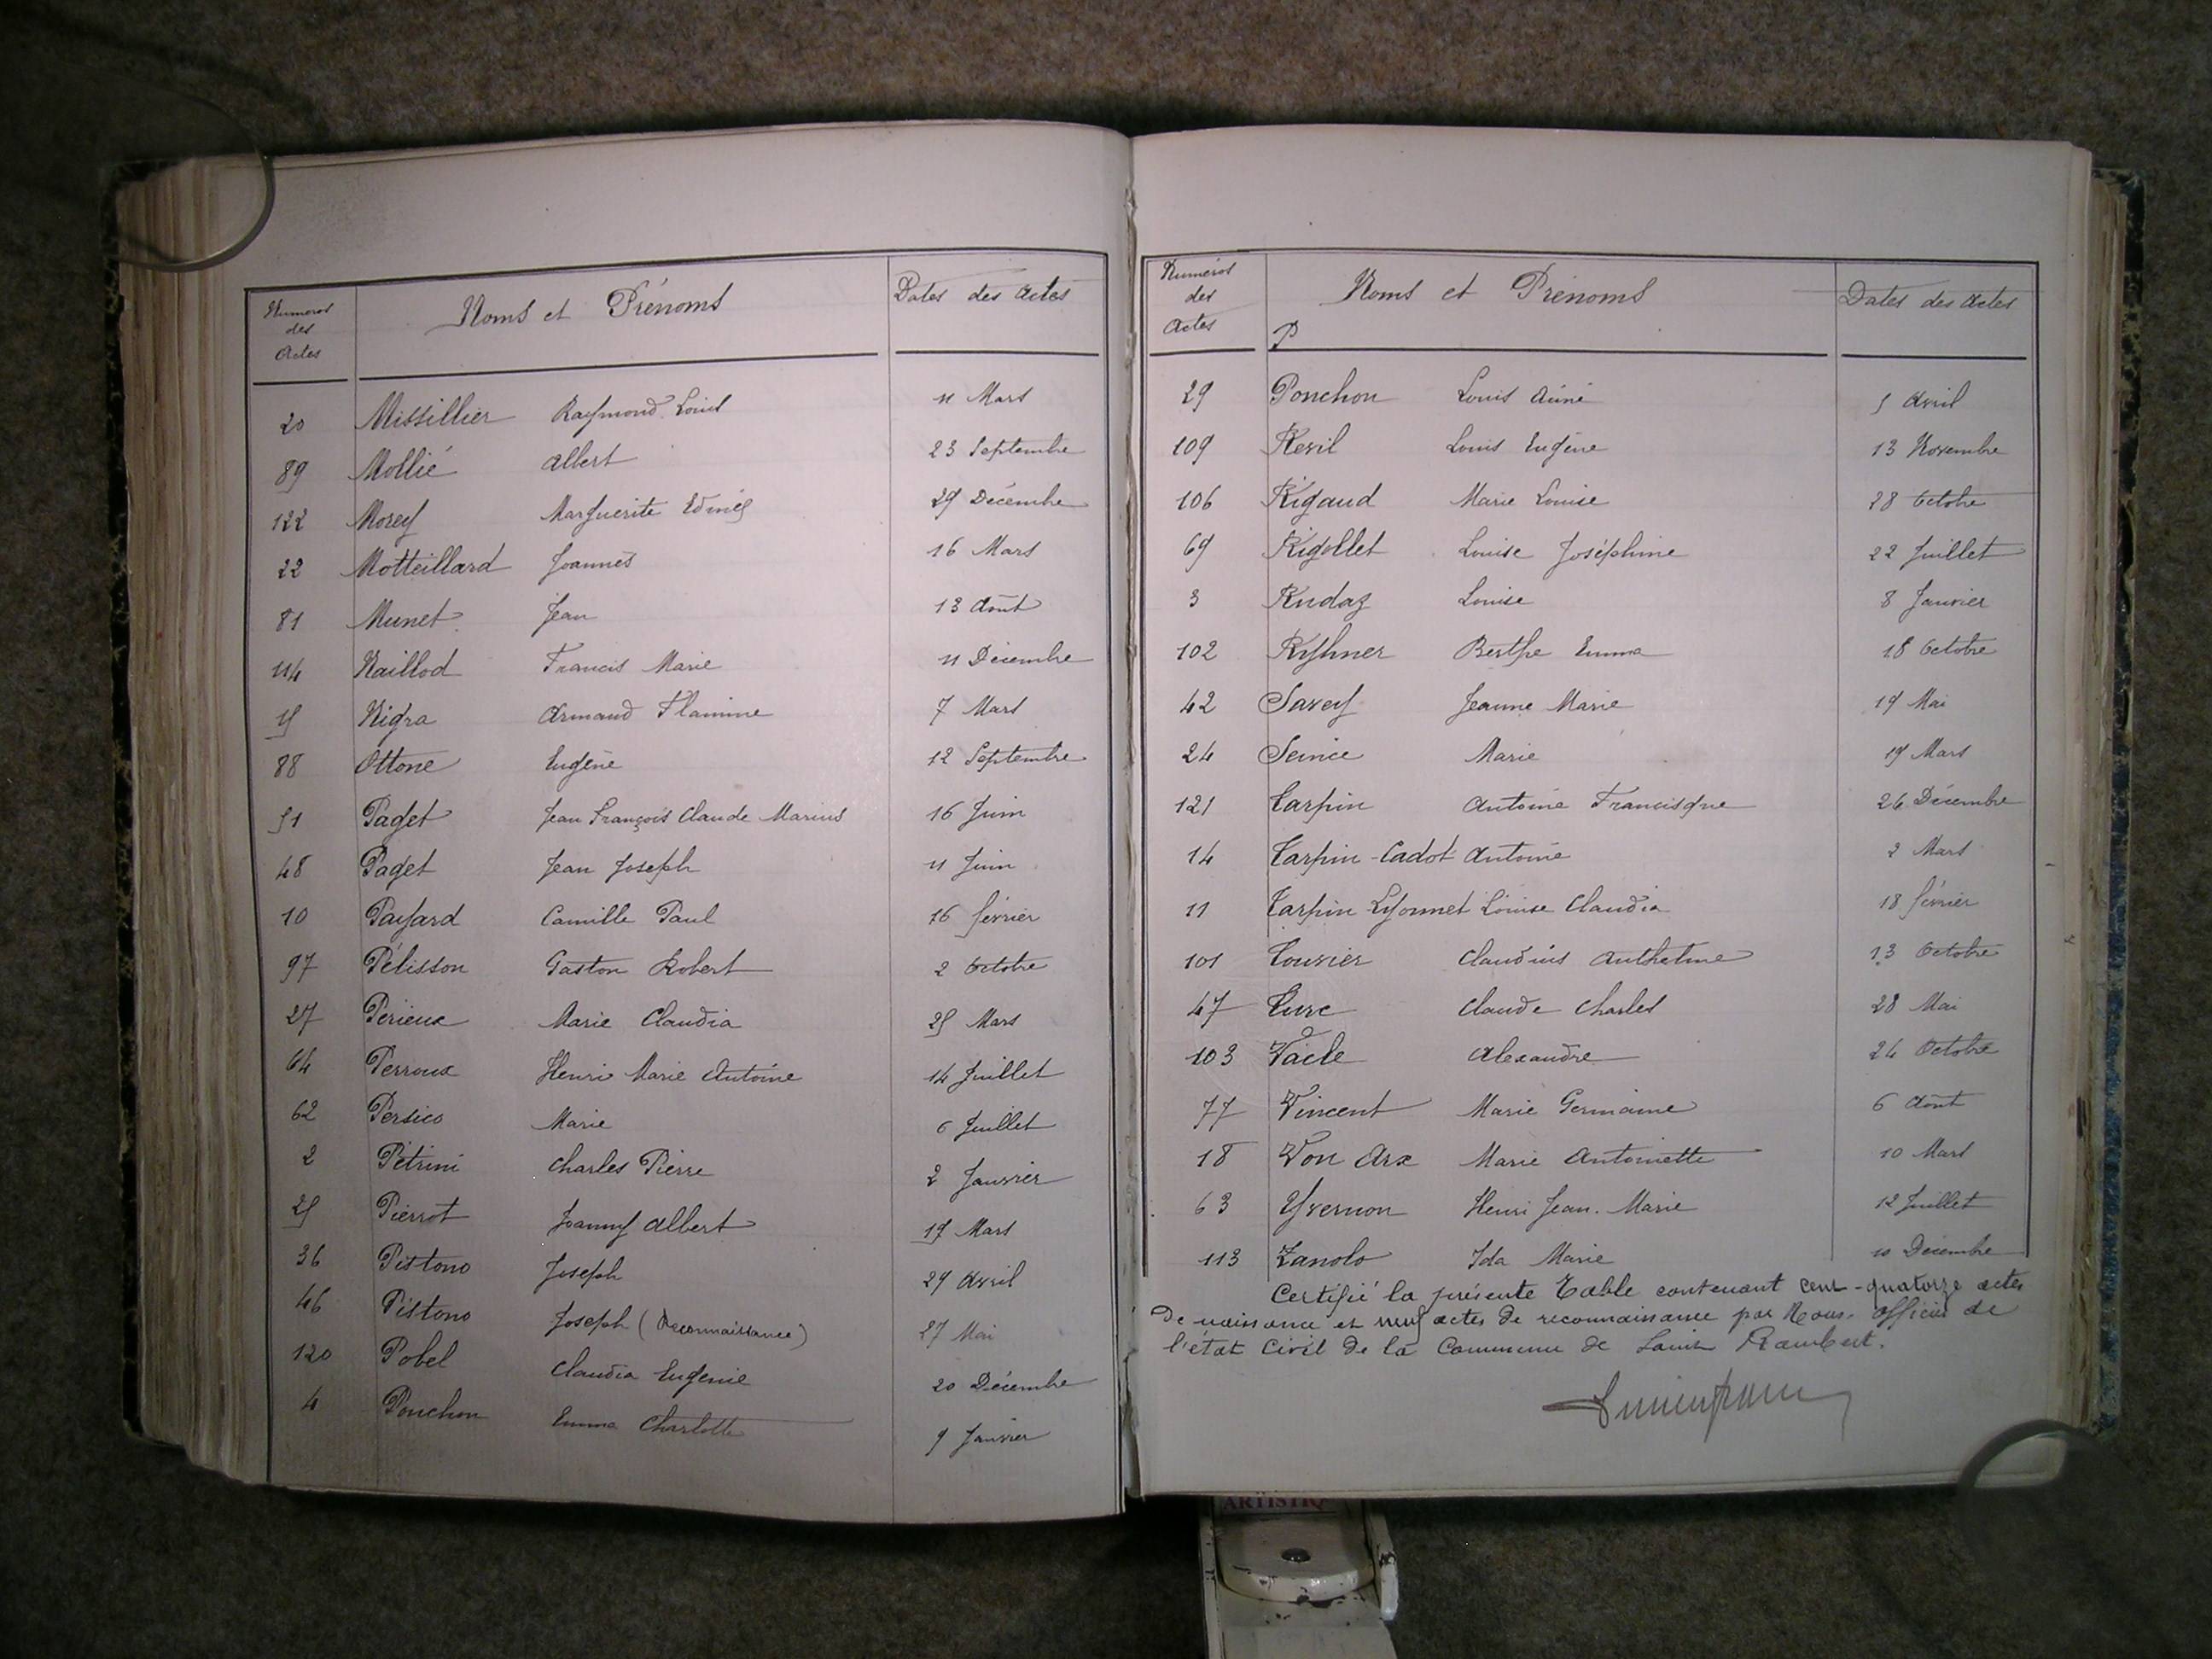 Numeros des Actes Noms et Prénoms Dates des Actes
20 Missillier Raymond Louis 11 Mars
89 Mollié Albert 23 Septembre
122 Morey Marguerite Edmée 29 Décembre
22 Motteillard Joannès 16 Mars
81 Munet Jean 13 Août
114 Naillod Francis Marie 11 Décembre
15 Nigra Armand Flamine 7 Mars
88 Ottone Eugène 12 Septembre
51 Paget Jean François Claude Marius 16 Juin
48 Paget Jean Joseph 11 Juin
10 Payard Camille Paul 16 février
97 Pélisson Gaston Robert 2 Octobre
27 Périeux Marie Claudia 25 Mars
64 Perroux Henri Marie Antoine 14 Juillet
62 Persico Marie 6 Juillet
2 Pétrini Charles Pierre 2 Janvier
25 Pierrot Joanny Albert 19 Mars
36 Pistono Joseph 29 Avril
46 Pistono Joseph (Reconnaissance) 27 Mai
120 Pobel Claudia Eugenie 20 Décembre
4 Ponchon Emma Charlotte 9 Janvier
Numéros des Actes Noms et Prénoms Dates des Actes
P
29 Ponchon Louis Aimé 5 Avril
109 Revil Louis Eugène 13 Novembre
106 Rigaud Marie Louise 28 Octobre
69 Rigollet Louise Joséphine 22 Juillet
3 Rudaz Louise 8 Janvier
102 Ryhner Berthe Emma 18 Octobre
42 Savey Jeanne Marie 19 Mai
24 Seince Marie 19 Mars
121 Tarpin Antoine Francisque 26 Décembre
14 Tarpin-Cadot Antoine 2 Mars
11 Tarpin Lyonnet Louise Claudia 18 février
101 Touvier Claudius Anthelme 13 Octobre
47 Turc Claude Charles 28 Mai
103 Vacle Alexandre 24 Octobre
77 Vincent Marie Germaine 6 Août
18 Von Arx Marie Antoinette 10 Mars
63 Yvernon Henri Jean-Marie 12 Juillet
113 Zanolo Ida Marie 10 Décembre
Certifié la présente Table contenant cent-quatorze actes
de naissance et neuf actes de reconnaissance par Nous, Officier de
l'état Civil de la Commune de Saint Rambert.